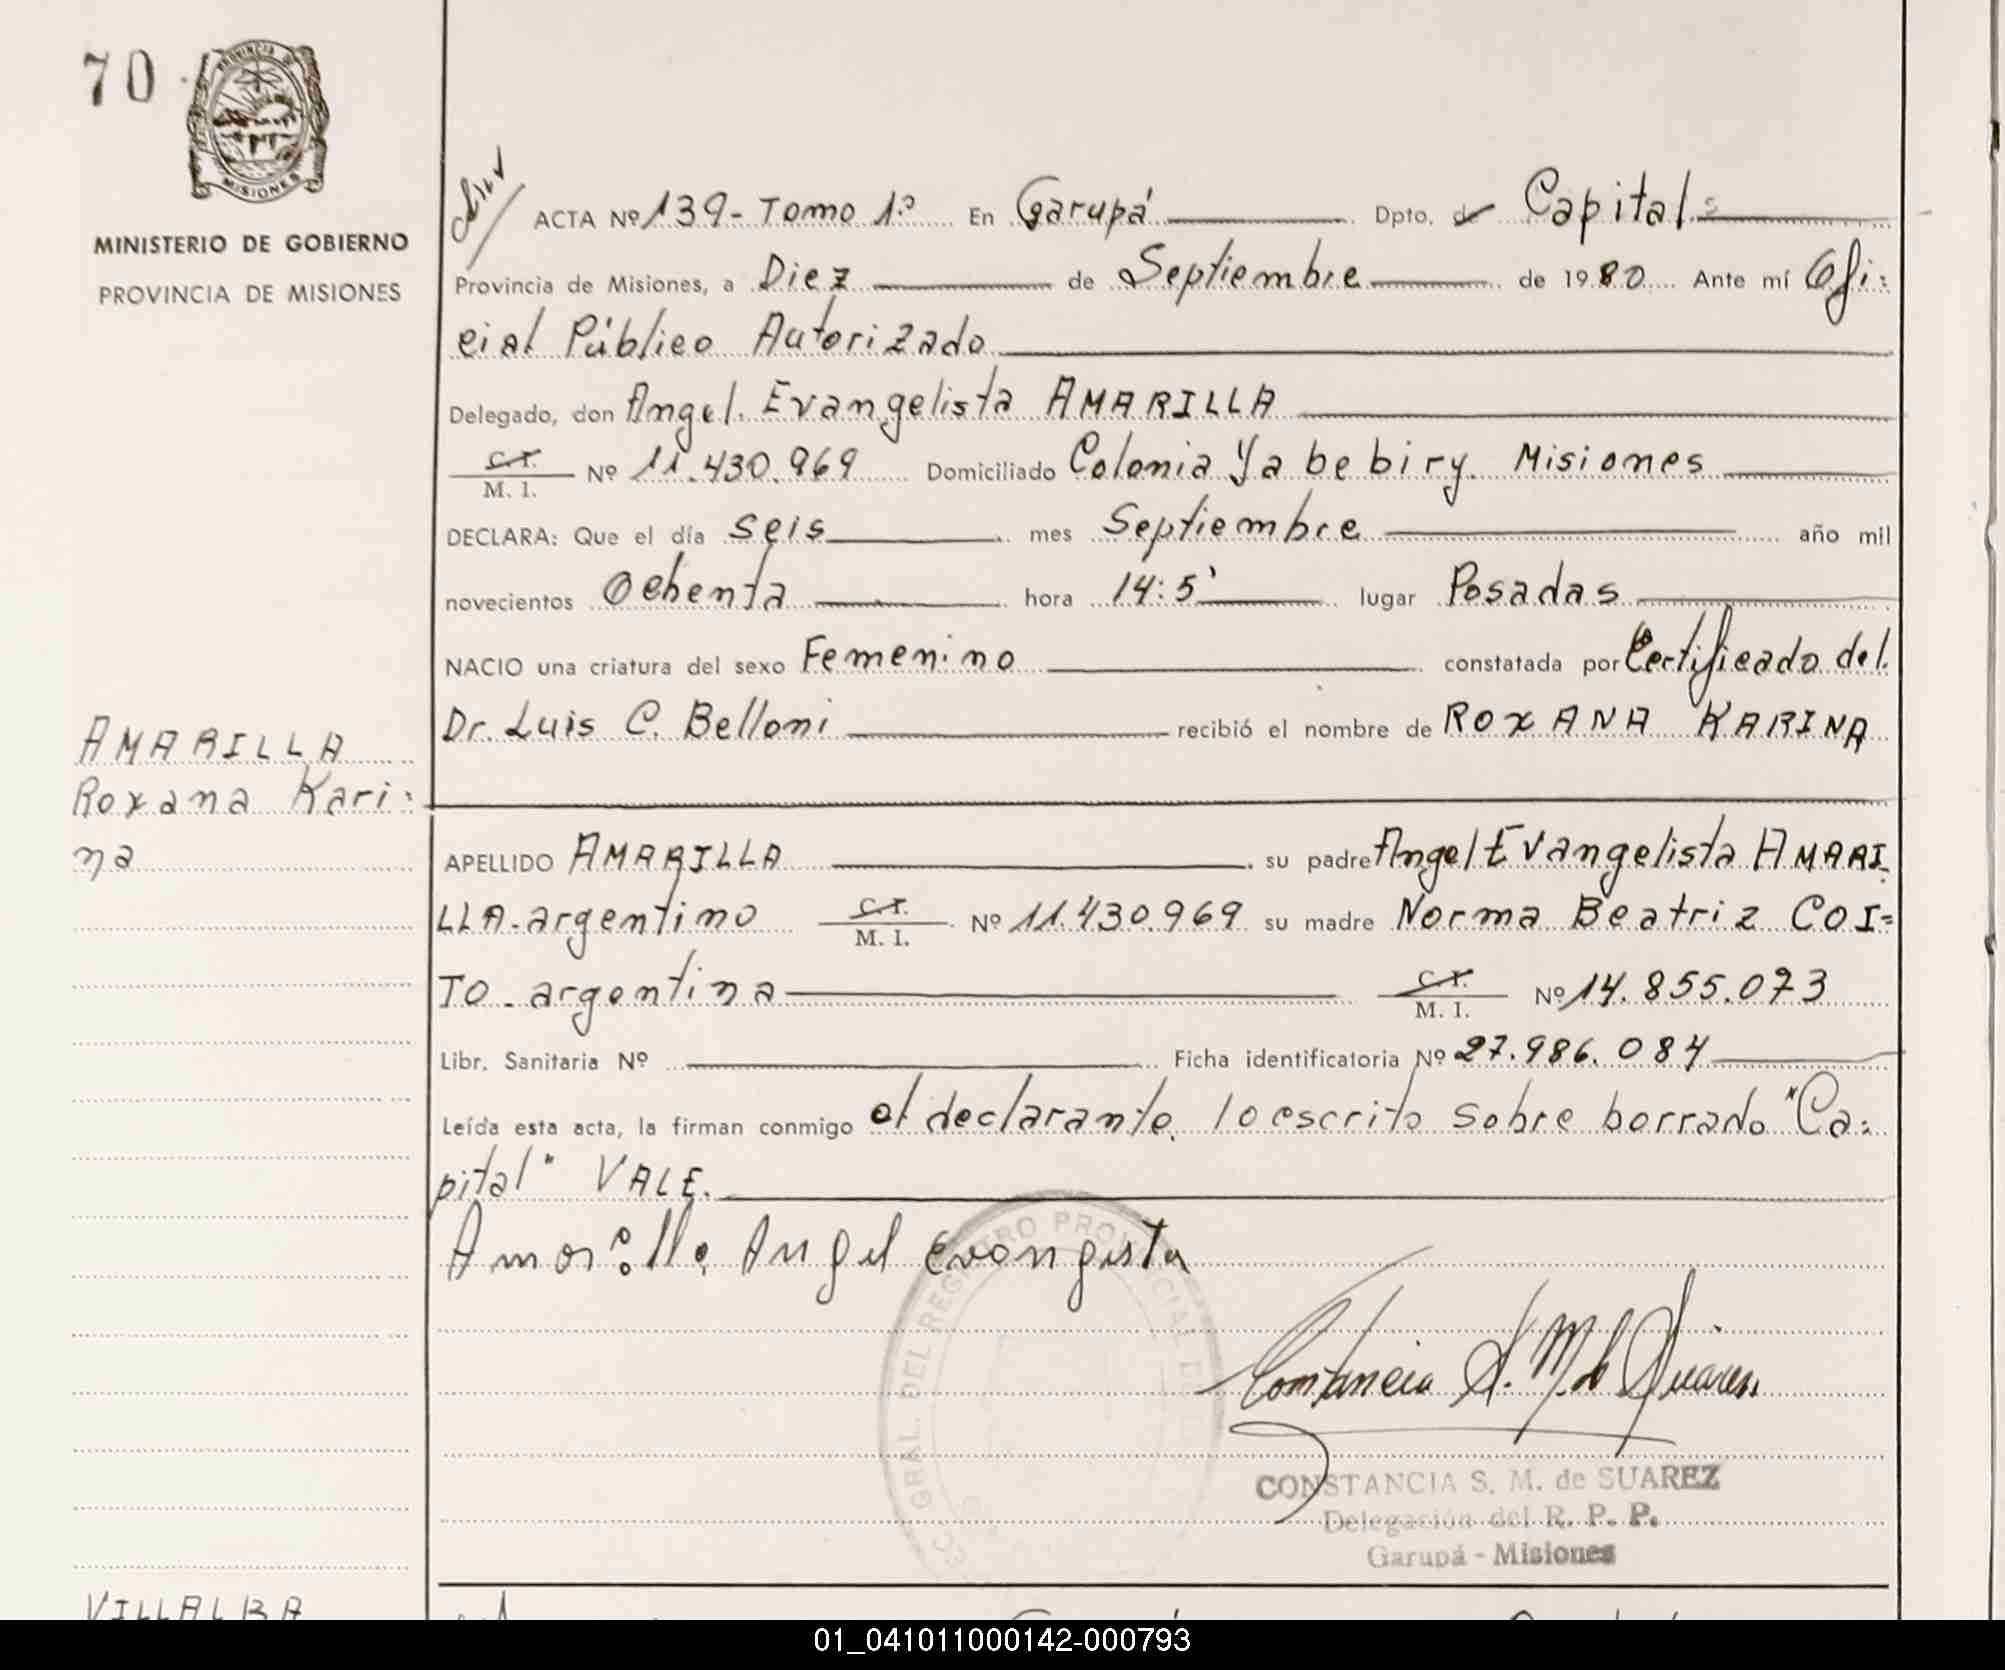 70
PROVINCIA DE
MISIONES
MINISTERIO DE GOBIERNO
PROVINCIA DE MISIONES
ACTA Nº 139- Tomo 1.º En Garupá Dpto. de Capital
Provincia de Misiones, a Diez de Septiembre de 1980 Ante mí Ofi:
cial Público Autorizado
Delegado, don Angel. Evangelista AMARILLA
C.I.
M. I. Nº 11.430.969 Domiciliado Colonia Yabebiry. Misiones
DECLARA: Que el día Seis mes Septiembre año mil
novecientos Ochenta hora 14:5' lugar Posadas
NACIO una criatura del sexo Femenino constatada por Certificado del
Dr. Luis C. Belloni recibió el nombre de ROXANA KARINA
AMARILLA
Roxana Kari:
na
APELLIDO AMARILLA su padre Angel Evangelista AMARI
LLA-argentino C.I. M. I. Nº 11.430.969 su madre Norma Beatriz COI=
TO-argentina C.I. M. I. Nº 14.855.073
Libr. Sanitaria Nº Ficha identificatoria Nº 27.986.084
Leída esta acta, la firman conmigo el declarante. lo escrito sobre borrado "Ca:
pital" VALE.
Amarilla Angel Evangesta
GRAL. DEL REGISTRO PROVINCIAL DE
Constancia S. M. de Suarez
CONSTANCIA S. M. de SUAREZ
Delegación del R. P. P.
Garupá - Misiones
VILLALBA
01_041011000142-000793